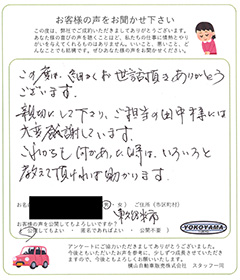 お客様の声をお聞かせ下さい
この度は、弊社でご成約いただきましてありがとうございます。
あなた様の喜びの声を聴くことほど、私たちの仕事に情熱とやり
がいを与えてくれるものはありません。いいこと、悪いこと、ど
んなことでも結構です。ぜひあなたの声をお聞かせください。
この度は、細かくお世話頂きありがとう
ございます。
親切にして下さり、ご担当の田中様には
大変感謝しています。
これからも何かあった時は、いろいろと
教えて頂ければ助かります。
お名
ご住所（市区町村）
お客様の声を公開してもよろしいですか？
公開してもよい ・ 匿名であればよい ・ 公開不可
YOKOYAMA
アンケートにご協力いただきましてありがとうございました。
今後ともいただいたお声を参考に、少しずつ成長させていただき
ますので、今後ともよろしくお願いいたします。
横山自動車販売株式会社 スタッフ一同